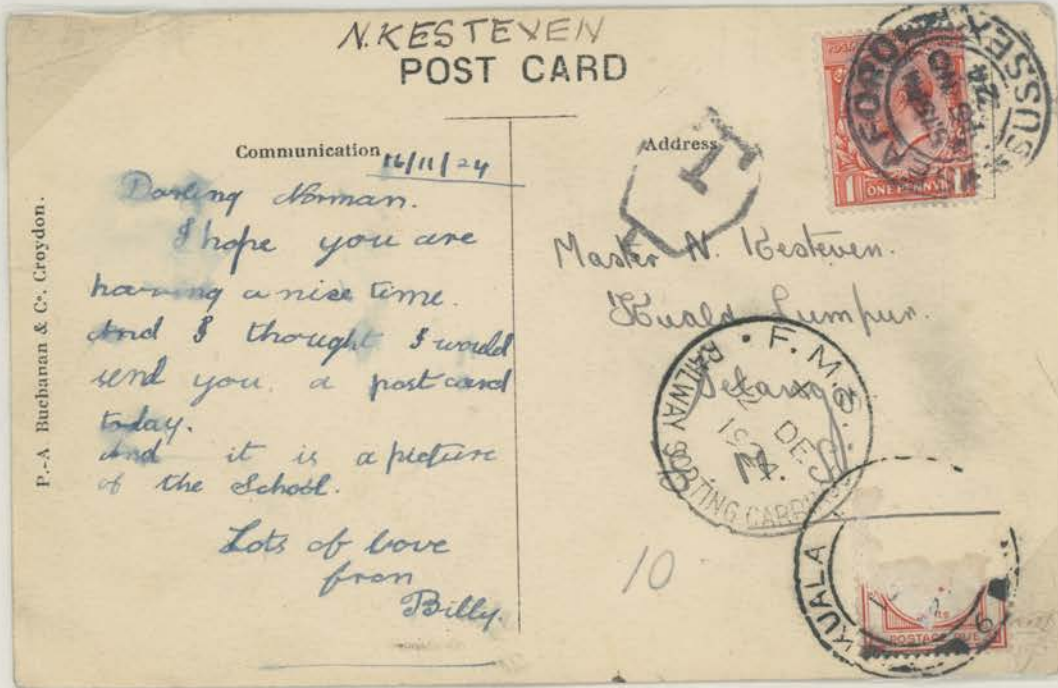 N. KESTEVEN
POST CARD
Communication
16/11/24
Darling Norman.
I hope you are
having a nice time.
And I thought I would
send you a post card
today.
And it is a picture
of the School.
Lots of love
from
Billy.
P.-A Buchanan & Co. Croydon.
Address
Master N. Kesteven.
Kuala Lumpur.
Selangor
T
SEAFORD
SUSSEX
NO
24
1 ONE PENNY 1
F.M.S.
RAILWAY SORTING CARRIAGE
DE
1924
10
KUALA
POSTAGE DUE